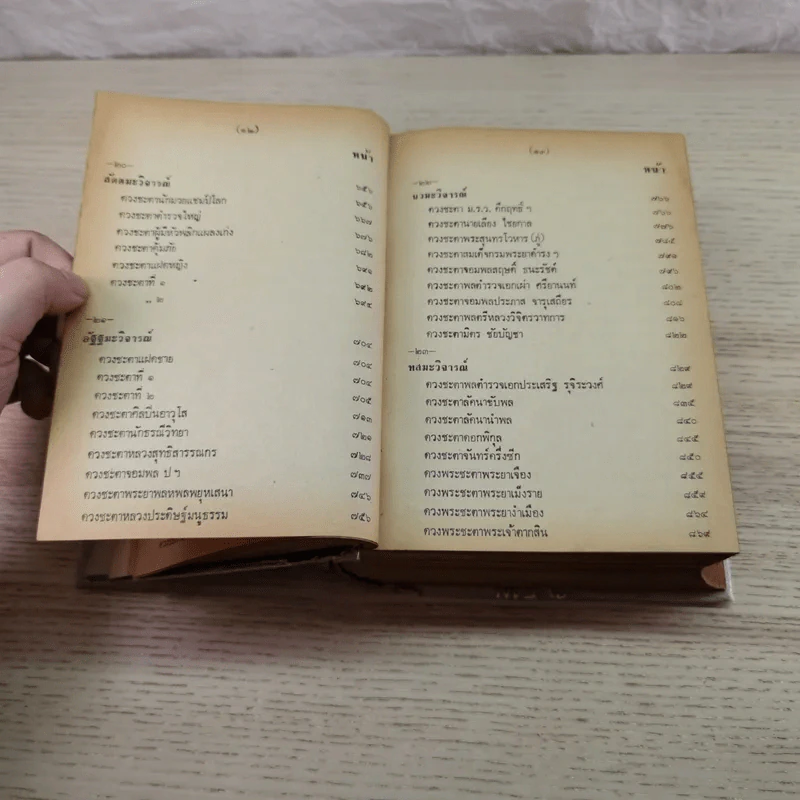 (๑๒)
หน้า
—๒๐—
สัตตมะวิจารณ์ ๖๕๖
ดวงชะตานักมวยแชมป์โลก ๖๕๖
ดวงชะตาตำรวจใหญ่ ๖๖๗
ดวงชะตาผู้มีหัวคลิกแผลงเก่ง ๖๗๖
ดวงชะตาคุ้มภัย ๖๘๒
ดวงชะตาแฝดหญิง ๖๙๑
ดวงชะตาที่ ๑ ๖๙๒
„ ๒ ๖๙๔
—๒๑—
อัฐฐมะวิจารณ์ ๗๐๔
ดวงชะตาแฝดชาย ๗๐๔
ดวงชะตาที่ ๑ ๗๐๔
ดวงชะตาที่ ๒ ๗๐๕
ดวงชะตาศิลปีนอาวุโส ๗๑๓
ดวงชะตานักธรณีวิทยา ๗๒๑
ดวงชะตาหลวงสุทธิสารรณกร ๗๒๘
ดวงชะตาจอมพล ป ฯ ๗๓๗
ดวงชะตาพระยาพลหพลพยุหเสนา ๗๔๖
ดวงชะตาหลวงประดิษฐ์มนูธรรม ๗๕๖
(๑๓)
หน้า
—๒๒—
นวมะวิจารณ์ ๗๖๖
ดวงชะตา ม.ร.ว. คึกฤทธิ์ ฯ ๗๖๖
ดวงชะตานายเลียง ไชยกาล ๗๗๖
ดวงชะตาพระสุนทรโวหาร (ภู่) ๗๘๕
ดวงชะตาสมเด็จกรมพระยาดำรง ฯ ๗๙๑
ดวงชะตาจอมพลสฤษดิ์ ธนะรัชต์ ๗๙๖
ดวงชะตาพลตำรวจเอกเผ่า ศรียานนท์ ๘๐๒
ดวงชะตาจอมพลประภาส จารุเสถียร ๘๐๘
ดวงชะตาพลตรีหลวงวิจิตรวาทการ ๘๑๖
ดวงชะตามิตร ชัยบัญชา ๘๒๒
—๒๓—
ทสมะวิจารณ์ ๘๒๙
ดวงชะตาพลตำรวจเอกประเสริฐ รุจิระวงศ์ ๘๒๙
ดวงชะตาลัคนาขับพล ๘๓๕
ดวงชะตาลัคนานำพล ๘๔๐
ดวงชะตาดอกพิกุล ๘๔๕
ดวงชะตาจันทร์ครึ่งซีก ๘๕๐
ดวงพระชะตาพระยาเจือง ๘๕๕
ดวงพระชะตาพระยาเม็งราย ๘๕๙
ดวงพระชะตาพระยางำเมือง ๘๖๔
ดวงพระชะตาพระเจ้าตากสิน ๘๖๙